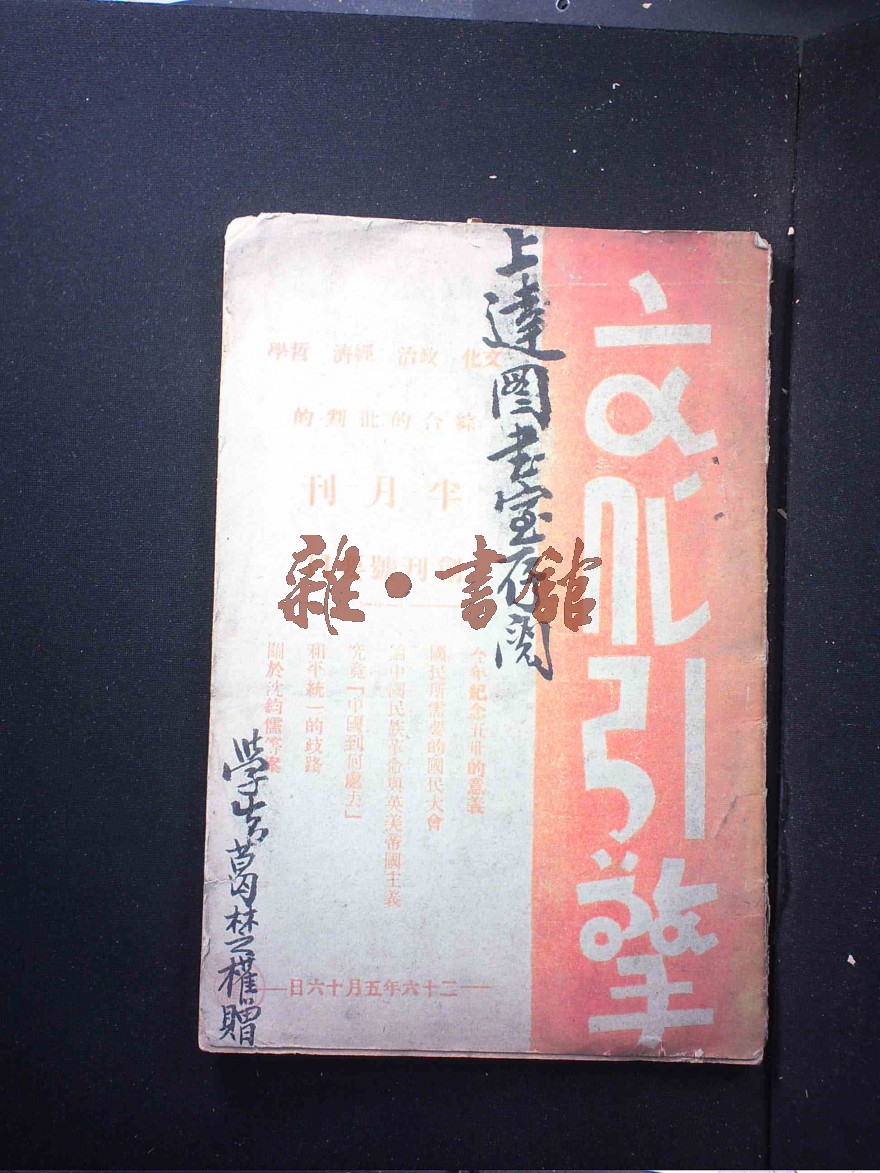 文化引擎
上達圖書室存閱
文化 政治 經濟 哲學
綜合的批判的
半月刊
創刊號
雜·書館
今年紀念五卅的意義
國民所需要的國民大會
論中國民族革命與英美帝國主義
究竟「中國到何處去」
和平統一的歧路
關於沈鈞儒等案
二十六年五月十六日
葛楚權贈